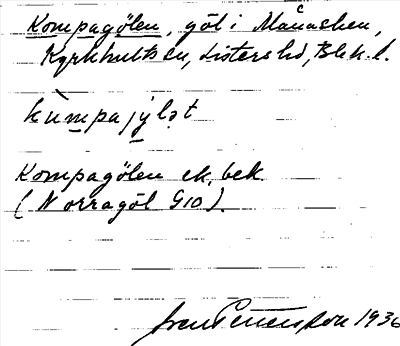 Kompagölen, göl i Månashen,
Kyrkhults sn, Listers hd, Blek. l.
kùmpajylət
Kompagölen ek, bek.
(Norragöl G10).
Sven Petersson 1936